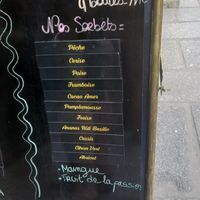 Nos Sorbets:
Pêche
Cerise
Poire
Framboise
Cacao Amer
Pamplemousse
Fraise
Ananas Rôti Basilic
Cassis
Citron Vert
Abricot
• Mangue
• Fruit de la passion